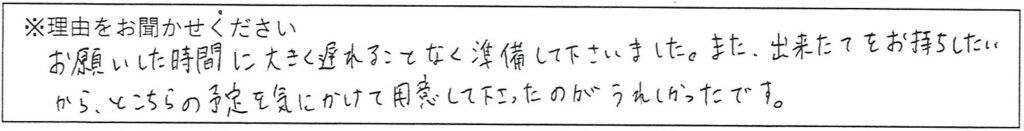 ※理由をお聞かせください
お願いした時間に大きく遅れることなく準備して下さいました。また、出来たてをお持ちしたい
から、とこちらの予定を気にかけて用意して下さったのがうれしかったです。